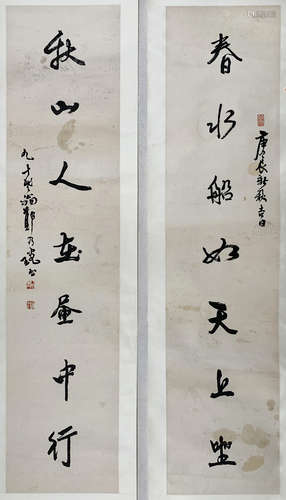 春水船如天上坐
庚辰新秋吉日
秋山人在畫中行
九十叟翁鄭乃珖书